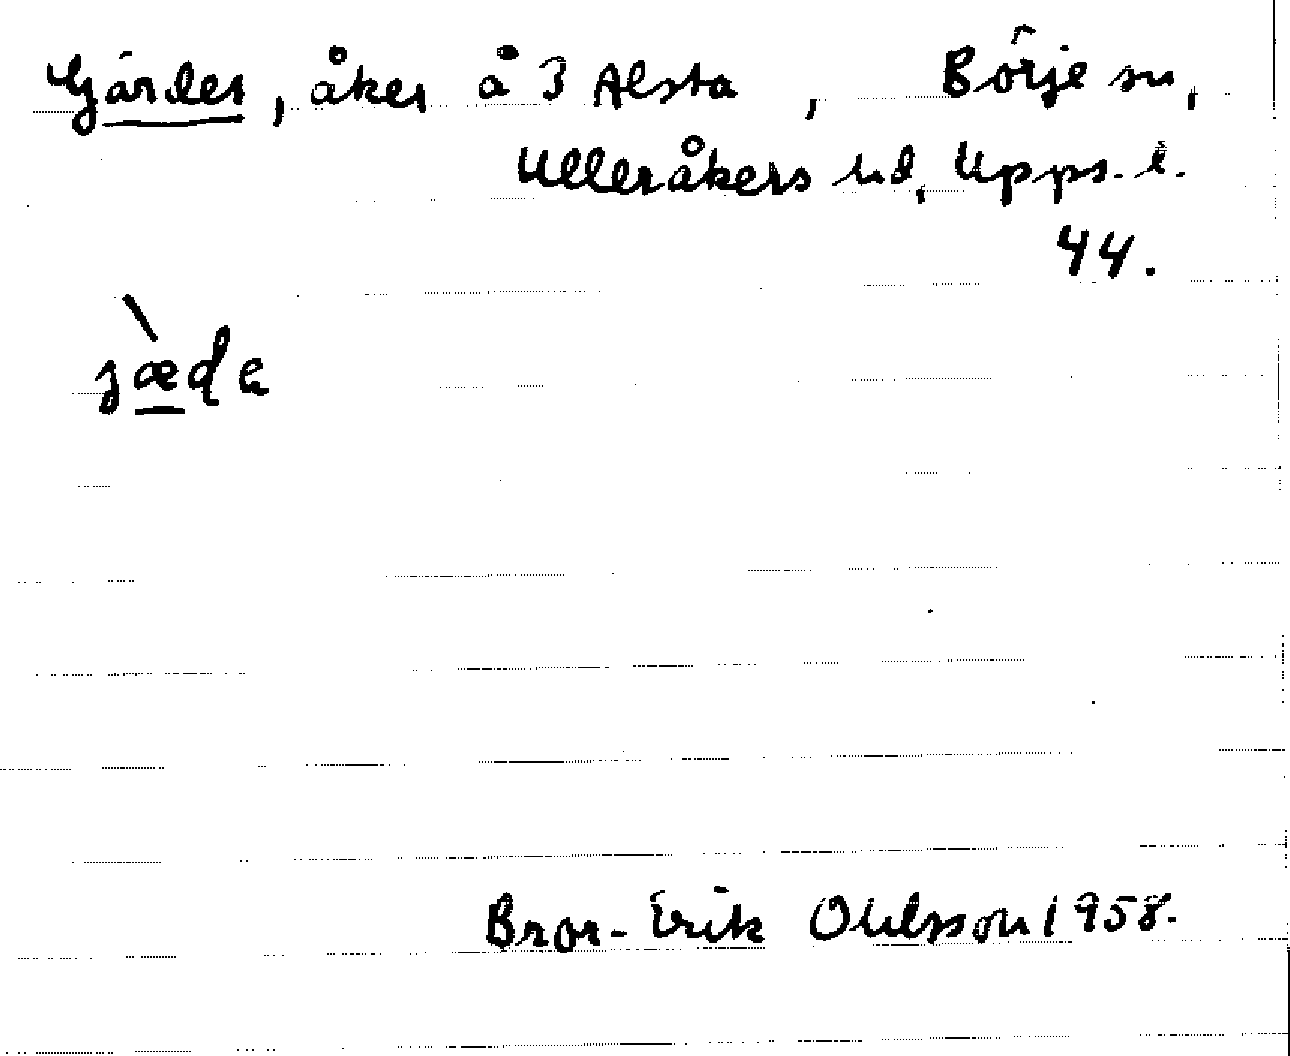 Gärdet, åker å 3 Alsta, Börje sn,
Ulleråkers hd, Upps. l.
44.
jæ̀de
Bror-Erik Ohlsson 1958.